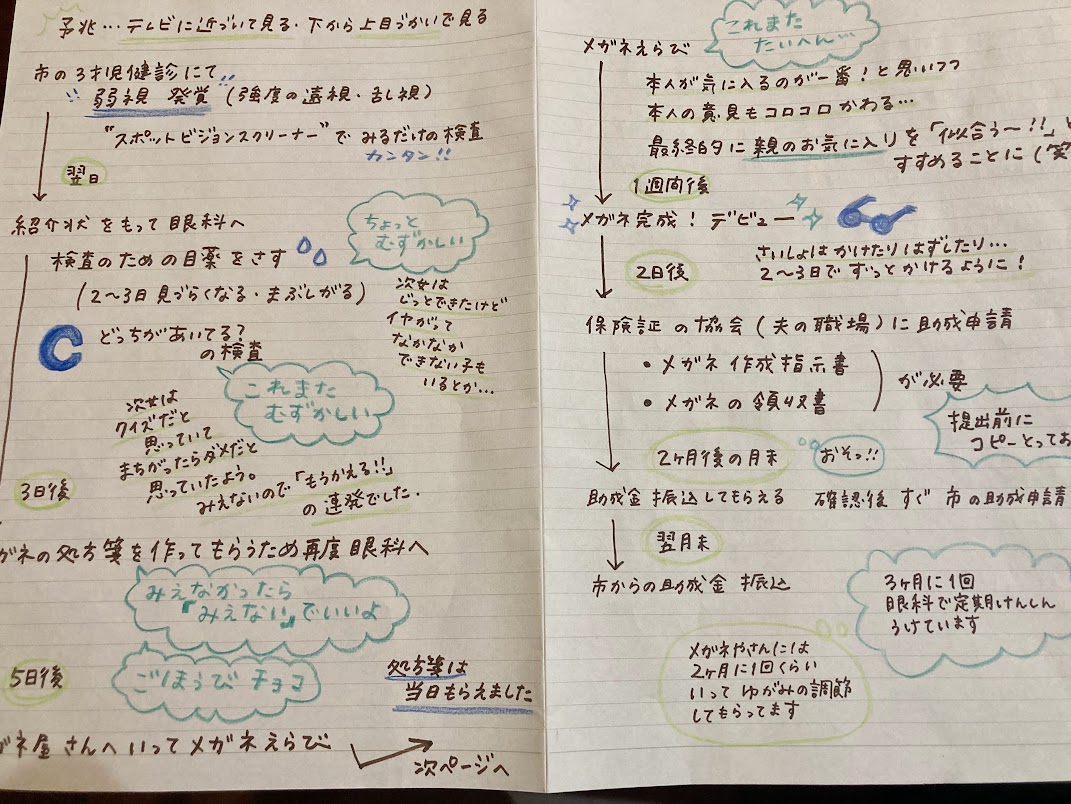 予兆…テレビに近づいて見る・下から上目づかいで見る
市の3才児健診にて
弱視 発覚 (強度の遠視・乱視)
"スポットビジョンスクリーナー"で みるだけの検査
カンタン!!
翌日
紹介状をもって眼科へ
検査のための目薬をさす
(2〜3日見づらくなる・まぶしがる)
ちょっと
むずかしい
次女は
じっとできたけど
イヤがって
なかなか
できない子も
いるとか…
C
どっちがあいてる?
の検査
これまた
むずかしい
次女は
クイズだと
思っていて
まちがったらダメだと
思っていたよう。
みえないので「もうかえる!!」
の連発でした.
3日後
ガネの処方箋を作ってもらうため再度眼科へ
みえなかったら
『みえない』でいいよ
5日後
ごほうび チョコ
処方箋は
当日もらえました
ガネ屋さんへいってメガネえらび
次ページへ
メガネえらび
これまた
たいへん…
本人が気に入るのが一番!と思いつつ
本人の意見もコロコロかわる…
最終的に親のお気に入りを「似合う〜!!」と
すすめることに(笑
1週間後
メガネ完成!デビュー
2日後
さいしょはかけたりはずしたり…
2〜3日でずっとかけるように!
保険証の協会(夫の職場)に助成申請
・メガネ作成指示書
・メガネの領収書
が必要
提出前に
コピーとってお
2ヶ月後の月末
おそっ!!
助成金振込してもらえる 確認後すぐ市の助成申請
翌月末
市からの助成金 振込
3ヶ月に1回
眼科で定期けんしん
うけています
メガネやさんには
2ヶ月に1回くらい
いって ゆがみの調節
してもらってます